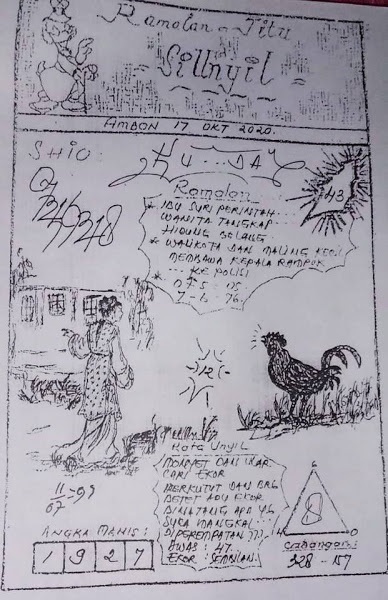 Ramalan Jitu
Sillnyil
AMBON 17 OKT 2020.
SHIO:
KU..DA
43
Ramalan
* IBU SURI PERINTAH...
WANITA TANGKAP
HIDUNG BELANG
* WALIKOTA DAN MALING KECIL
MEMBAWA KEPALA RAMPOK
... KE POLISI
075:05
7-6:76
12
Kata Unyil
MONYET DAN ULAR
CARI EKOR
PERKUTUT DAN BRG
BETET ADU EKOR
BINATANG APA YG
SUKA MANGKAL
DIPEREMPATAN ???
AWAS: 47..
EKOR SEMBILAN.
11 = 99
07
ANGKA MANIS:
1 9 2 7
6
8
4 0
Cadangan:
328 - 157